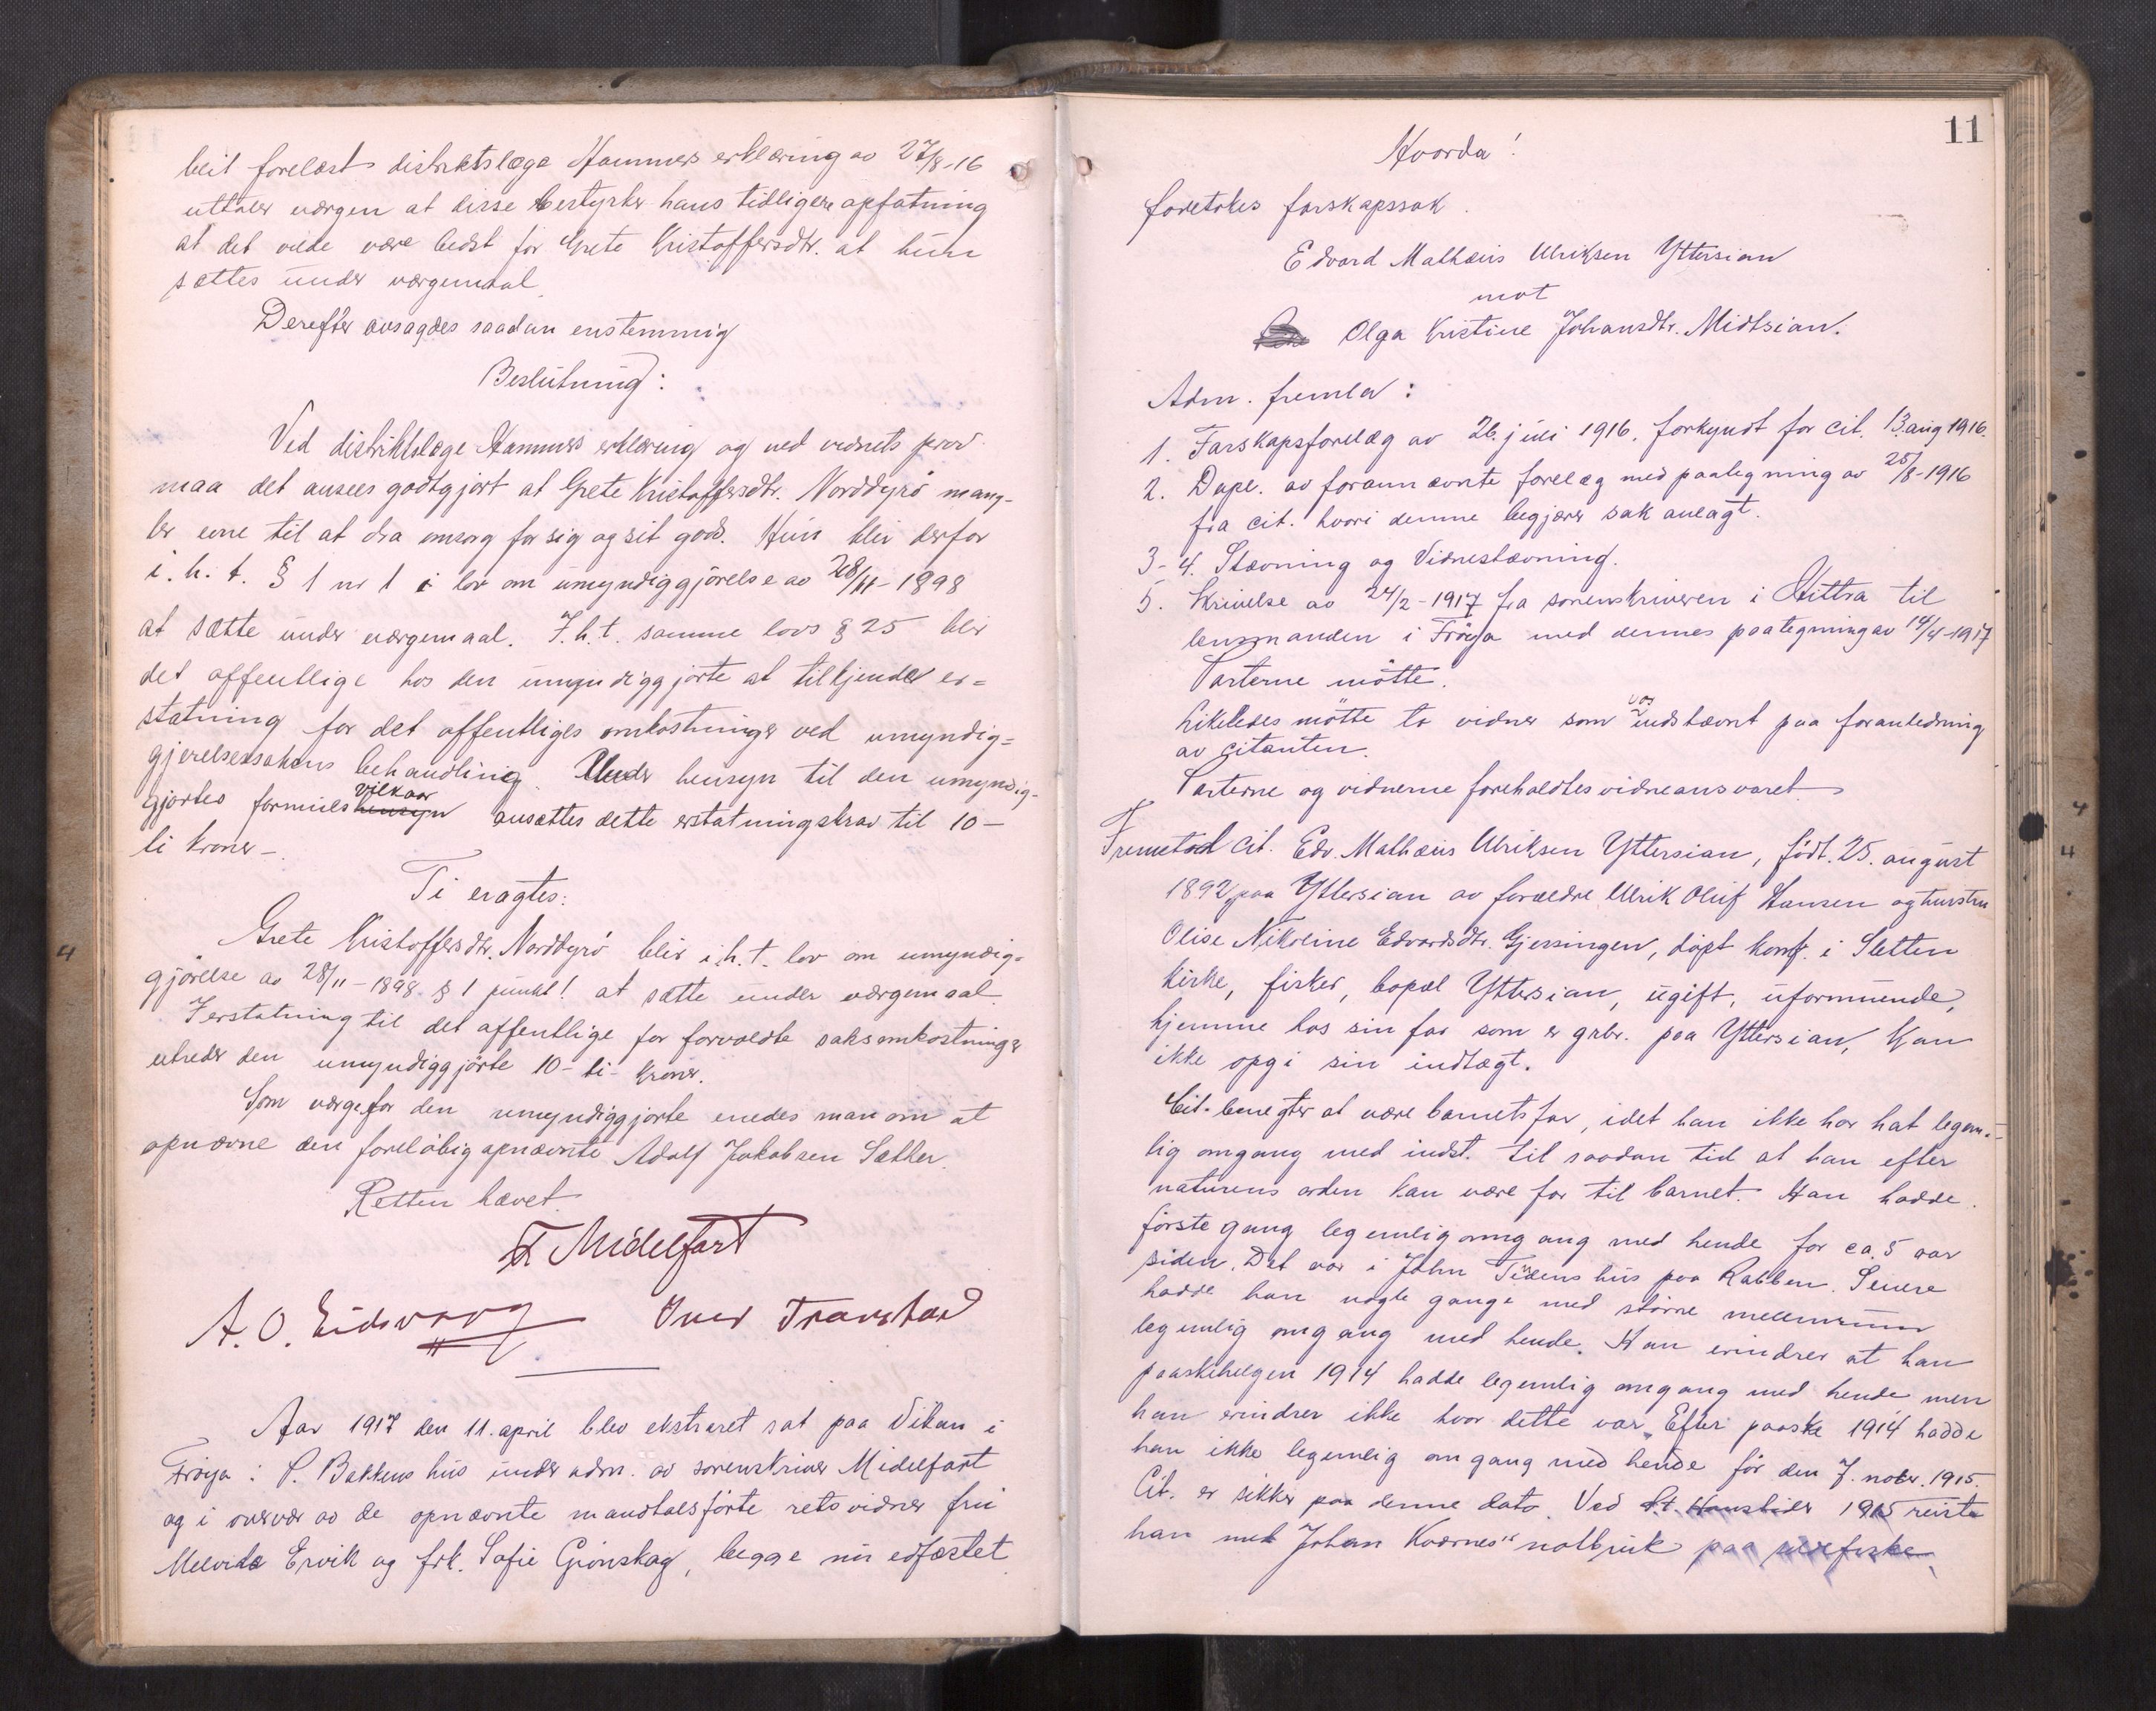 bleit forelæst distriktslæge Hammers erklæring av 27/8-16
uttaler værgen at disse bestyrker hans tidligere opfatning
at det vilde være bedst for Grete Kristoffersdtr. at hun
sættes under værgemaal.
Derefter avsagdes saadan enstemmig
Beslutning:
Ved distriktslæge Hammers erklæring og ved vidnets prov
maa det ansees godtgjort at Grete Kristoffersdtr. Norddyrö mang-
ler evne til at dra omsorg for sig og sit gods. Hun blir derfor
i. h. t. § 1 nr 1 i lov om umyndiggjörelse av 28/11-1898
at sætte under værgemaal. I. h. t. samme lovs § 25 blir
det offentlige hos den umyndiggjorte at tilkjende er=
statning for det offentliges omkostninger ved umyndig=
gjørelsessakens behandling. Under hensyn til den umyndig-
gjortes formues hensyn vilkaar ansættes dette erstatningskrav til 10-
ti kroner-.
Ti eragtes:
Grete Kristoffersdtr. Norddyrö blir i. h. t. lov om umyndig=
gjörelse av 28/11-1898 § 1 punkt 1 at sætte under værgemaal.
I erstatning til det offentlige for forvoldte saksomkostninger
utreder den umyndiggjörte 10- ti- kroner.
Som værge for den umyndiggjorte enedes man om at
opnævne den foreløbig opnævnte Adolf Jakobsen Sæther.
Retten hævet.
F Midelfart
A. O. Eidsvaag Iver Travstad
Aar 1917 den 11. april blev ekstraret sat paa Vikan i
Fröya i P. Bakkens hus under adm. av sorenskriver Midelfart
og i overvær av de opnævnte mandtalsförte retsvidner fru
Melvide Ervik og frk. Sofie Grönskag, begge nu edfæstet.
11
Hvorda!
foretokes farskapssak.
Edvard Mathæus Ulriksen Yttersian
mot
Olga Kristine Johansdtr. Midtsian.
Adm. fremla:
1. Farskapsforelæg av 26. juli 1916, forkyndt for cit. 13. aug 1916.
2. Dupl. av forannævnte forelæg med paategning av 25/8-1916
fra cit. hvori denne begjærer sak anlagt.
3-4. Stævning og Vidnestævning.
5. Skrivelse av 24/2-1917 fra sorenskriveren i Hittra til
lensmanden i Fröya med dennes paategning av 14/4-1917
Parterne mötte.
Likeledes mötte to vidner som var indstævnt paa foranledning
av citanten.
Parterne og vidnerne foreholdtes vidneansvaret.
Fremstod cit. Edv. Mathæus Ulriksen Yttersian, födt. 25. august
1892, paa Yttersian av forældre Ulrik Oluf Hansen og hustru
Olise Nikoline Edvardsdtr. Gjessingen, döpt konf. i Sletten
kirke, fisker, bopæl Yttersian, ugift, uformuende,
hjemme hos sin far som er grbr. paa Yttersian, kan
ikke opgi sin indtægt.
Cit. benegter at være barnets far, idet han ikke har hat legem-
lig omgang med indst. til saadan tid at han efter
naturens orden kan være far til barnet. Han hadde
förste gang legemlig omgang med hende for ca. 5 aar
siden. Det var i John Tidens hus paa Rabben. Senere
hadde han nogle gange med större mellemrum
legemlig omgang med hende. Han erindrer at han
paaskehelgen 1914 hadde legemlig omgang med hende men
han erindrer ikke hvor dette var. Efter paaske 1914 hadde
han ikke legemlig omgang med hende för den 7. novbr. 1915.
Cit. er sikker paa denne dato. Ved St. Hanstider 1915 reiste
han med Johan Kværnes" notbruk paa sildefiske,
4
4
4